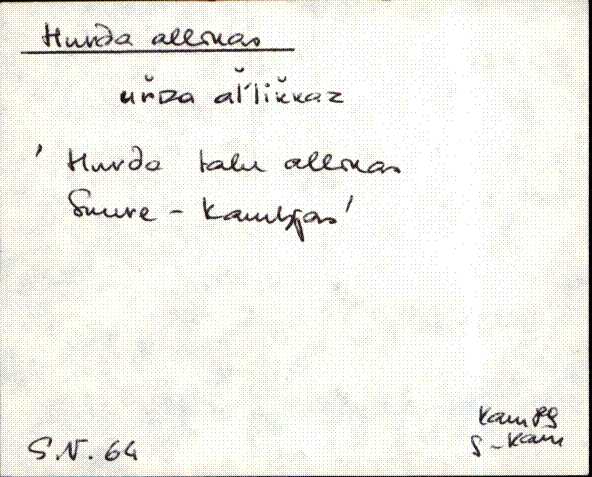 Hurda allikas
ur̆da al̆'lik̆kaz
' Hurda talu allikas
Suure - Kambjas'
S.N. 64
Kam
S-Kam